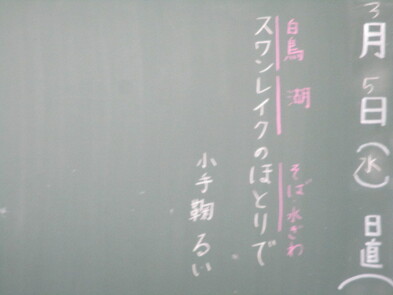 3月5日(水) 日直(
白鳥 湖 そば・水ぎわ
スワンレイクのほとりで
小手鞠るい